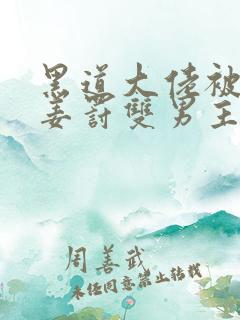 黑道大佬被
姜罰雙男主
周善武
未经同意禁止转载